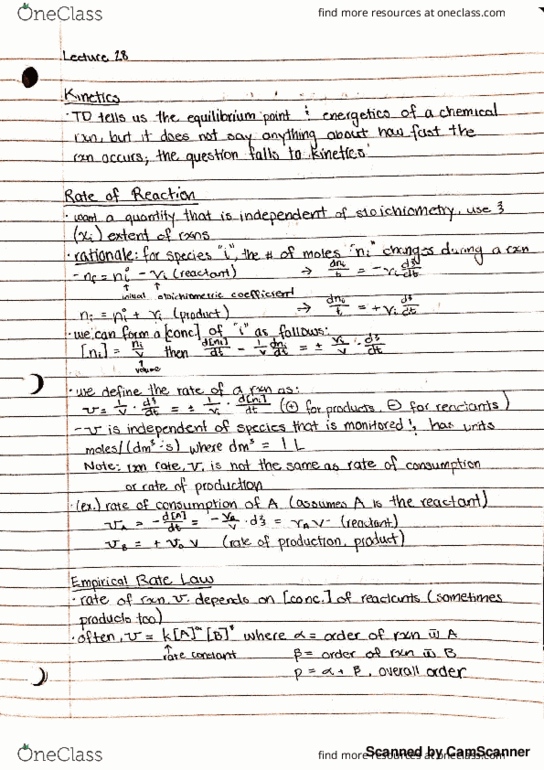 OneClass
find more resources at oneclass.com
Lecture 28
Kinetics
· TD tells us the equilibrium point & energetics of a chemical
rxn, but it does not say anything about how fast the
rxn occurs; the question falls to kinetics
Rate of Reaction
· want a quantity that is independent of stoichiometry, use ξ
(xi) extent of rxns
· rationale: for species "i", the # of moles "ni" changes during a rxn
- ni = ni° - νi (reactant) → dni/dt = -νi dξ/dt
initial stoichiometric coefficient
ni = ni° + νi (product) → dni/dt = +νi dξ/dt
· we can form a [conc] of "i" as follows:
[ni] = ni/V then d[ni]/dt - 1/V dni/dt = ± νi/V · dξ/dt
volume
· we define the rate of a rxn as:
v = 1/V · dξ/dt = ± 1/νi · d[ni]/dt (⊕ for products, ⊖ for reactants)
- v is independent of species that is monitored & has units
moles/(dm³·s) where dm³ = 1 L
Note: rxn rate, v, is not the same as rate of consumption
or rate of production
· (ex.) rate of consumption of A (assumes A is the reactant)
vA = -d[A]/dt = -νA/V · dξ = νA v (reactant)
vB = + v (rate of production, product)
Empirical Rate Law
· rate of rxn v depends on [conc.] of reactants (sometimes
products too)
· often, v = k[A]^α [B]^β where α = order of rxn in A
rate constant β = order of rxn in B
p = α + β, overall order
OneClass
find more resources at oneclass.com
Scanned by CamScanner